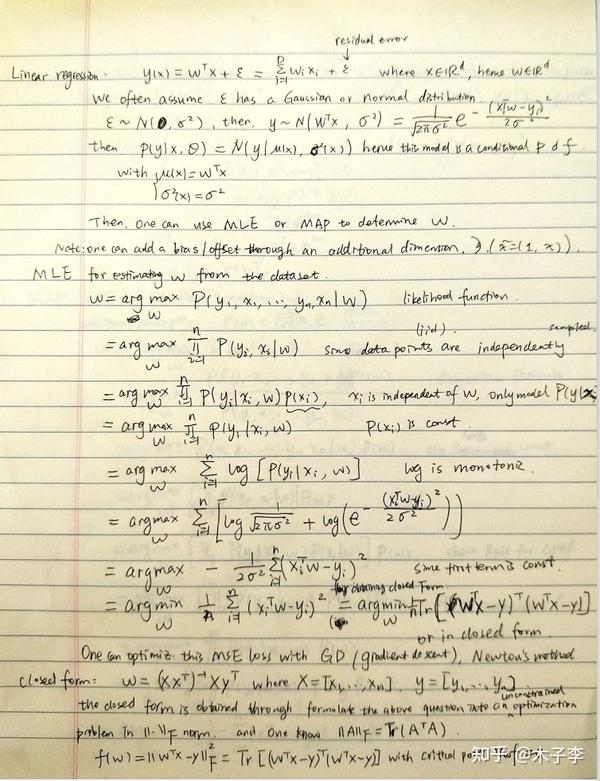 residual error
↓
Linear regression: y(x) = wᵀx + ε = Σᵢ₌₁ᴰ wᵢxᵢ + ε where x∈ℝᵈ, hence w∈ℝᵈ
We often assume ε has a Gaussian or normal distribution
ε ~ N(0, σ²), then. y ~ N(wᵀx, σ²) = 1/√(2πσ²) e^(-(xᵢᵀw-yᵢ)²/2σ²)
then p(y|x, θ) = N(y|μ(x), σ²(x)) hence this model is a conditional p d f
with { μ(x) = wᵀx
σ²(x) = σ²
Then, one can use MLE or MAP to determine w.
Note: one can add a bias/offset through an additional dimension, (x̃=(1, x)).
MLE for estimating w from the dataset.
w = arg max_w P(y₁, x₁, ..., yₙ, xₙ|w) likelihood function.
(iid). sampled
= arg max_w ∏ᵢ₌₁ⁿ P(yᵢ, xᵢ|w) since data points are independently
= arg max_w ∏ᵢ₌₁ⁿ P(yᵢ|xᵢ, w) P(xᵢ), xᵢ is independent of w, only model P(y|x)
= arg max_w ∏ᵢ₌₁ⁿ P(yᵢ|xᵢ, w) P(xᵢ) is const.
= arg max_w Σᵢ₌₁ⁿ log [P(yᵢ|xᵢ, w)] log is monotonic.
= argmax_w Σᵢ₌₁ⁿ [log 1/√(2πσ²) + log(e^(-(xᵢᵀw-yᵢ)²/2σ²))]
= argmax_w - 1/2σ² Σᵢ₌₁ⁿ (xᵢᵀw-yᵢ)² since first term is const.
for obtaining closed form
= argmin_w 1/n Σᵢ₌₁ⁿ (xᵢᵀw-yᵢ)² = argmin_w 1/n Tr[(wᵀX-y)ᵀ(wᵀX-y)]
or in closed form.
One can optimiz this MSE loss with GD (gradient descent), Newton's method
closed form: w = (XXᵀ)⁻¹Xyᵀ where X = [x₁, ..., xₙ], y = [y₁, ..., yₙ]
unconstrained
the closed form is obtained through formulate the above question into an optimization
problem in ||·||F norm. and One know ||A||F = Tr(AᵀA)
f(w) = ||wᵀX-y||²F = Tr[(wᵀX-y)ᵀ(wᵀX-y)] with critical point
知乎 @木子李